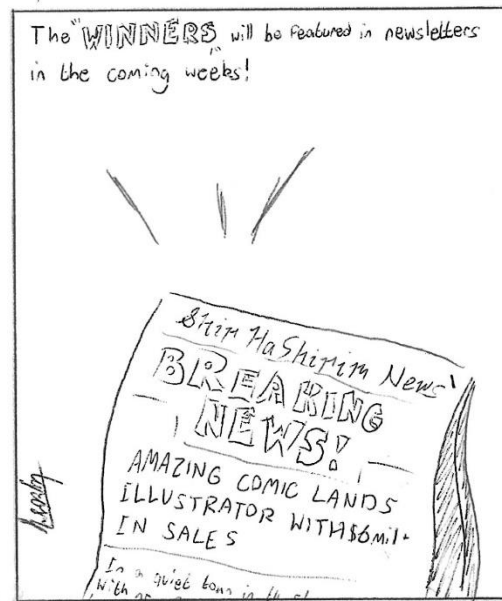 The "WINNERS" will be featured in newsletters
in the coming weeks!
Shir HaShirim News
BREAKING
NEWS!
AMAZING COMIC LANDS
ILLUSTRATOR WITH $6mil+
IN SALES
In a quiet town in the
with